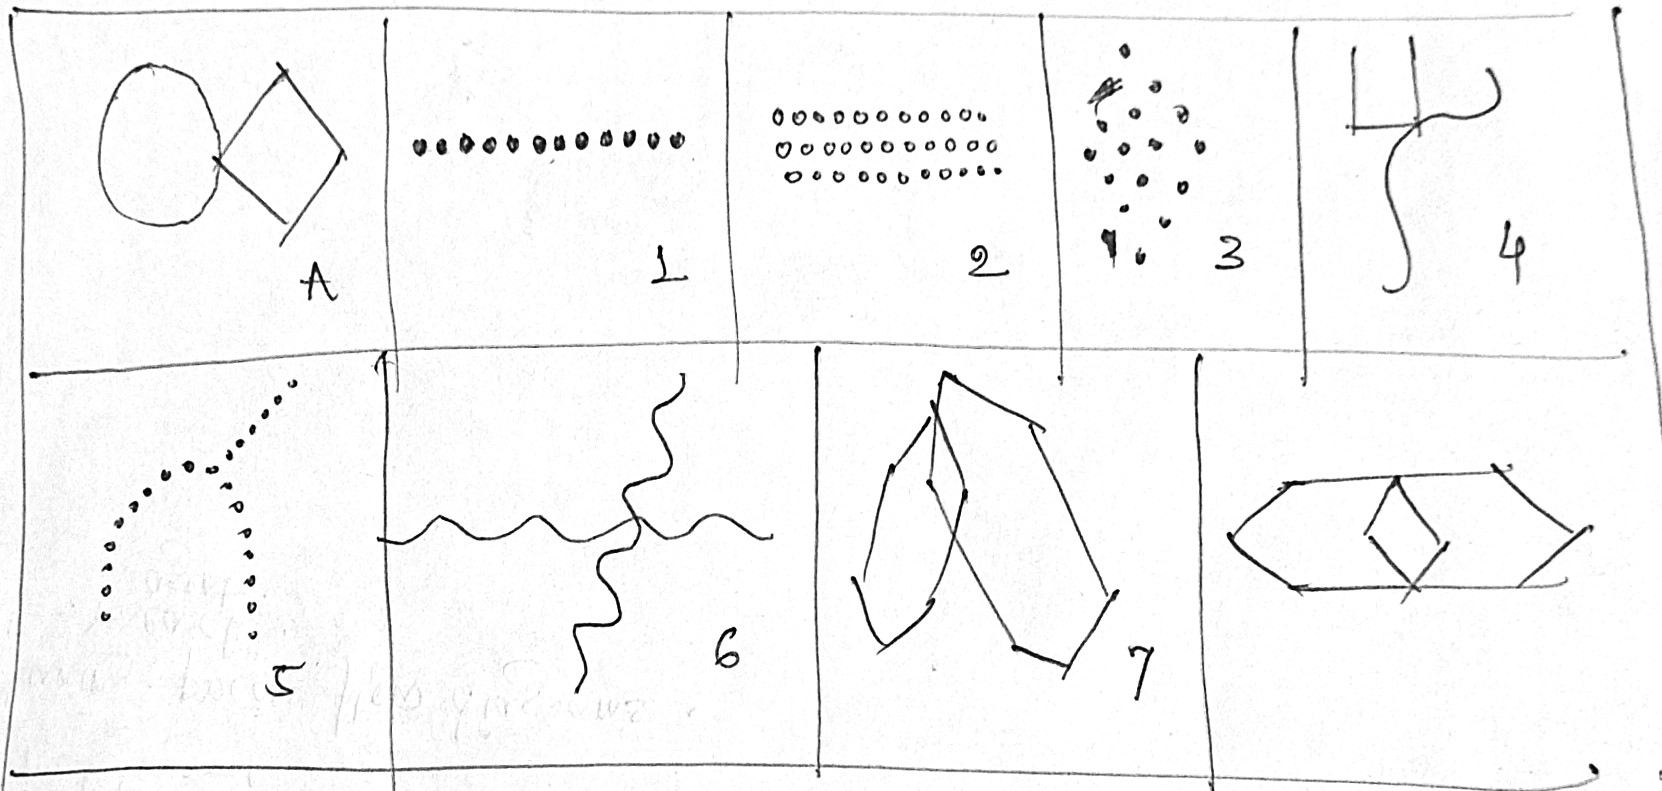 A
1
2
3
4
5
6
7